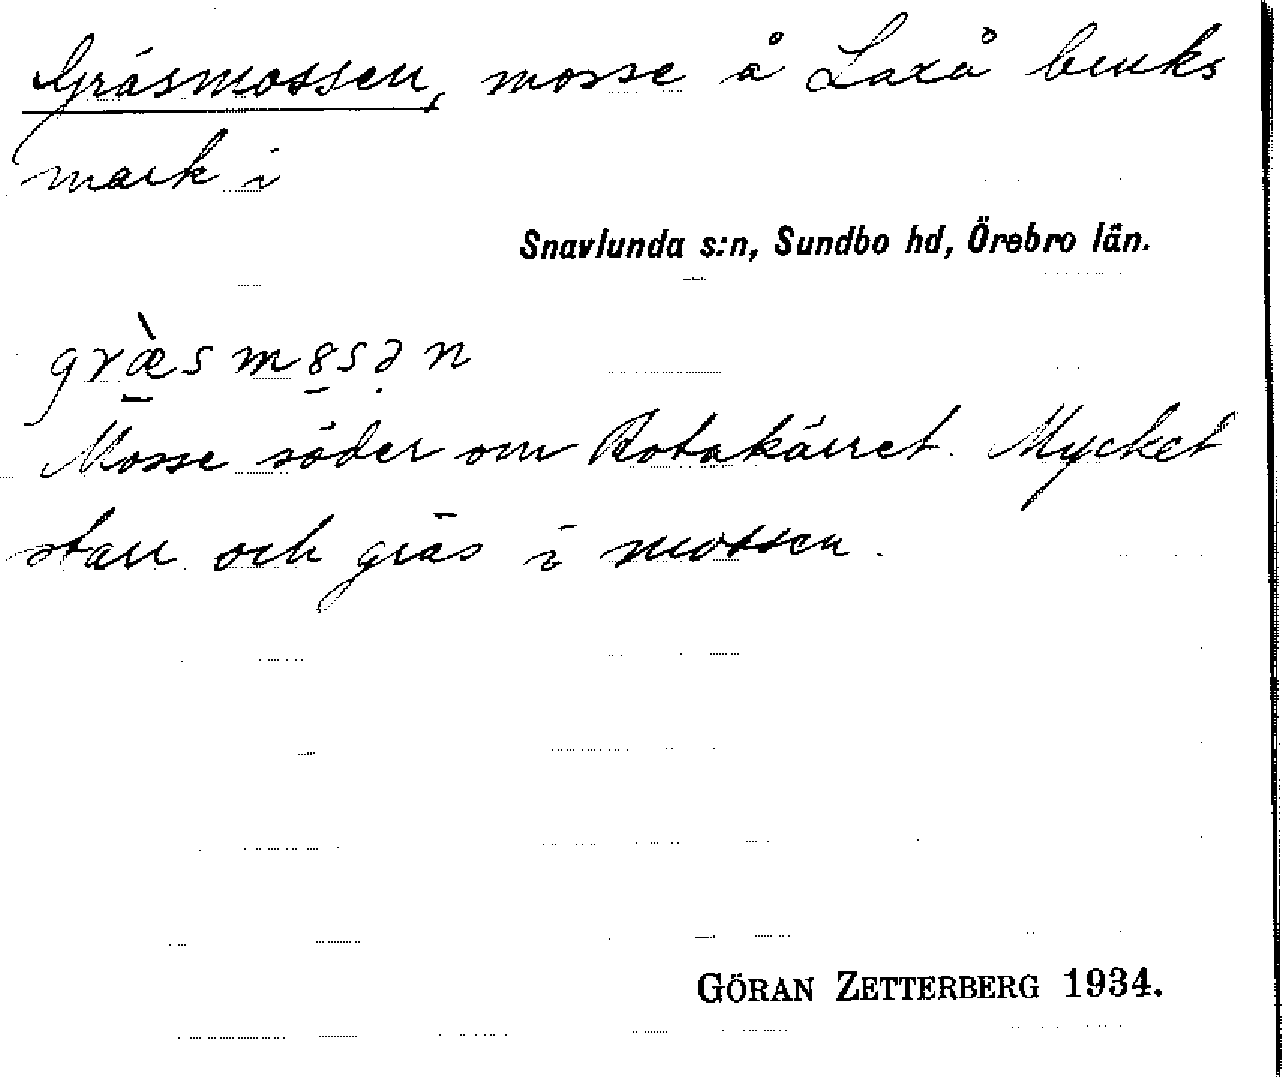 Gräsmossen, mosse å Laxå bruks
mark i
Snavlunda s:n, Sundbo hd, Örebro län.
græ̀sm8sən
Mosse söder om Rotakärret. Mycket
starr och gräs i mossen.
GÖRAN ZETTERBERG 1934.